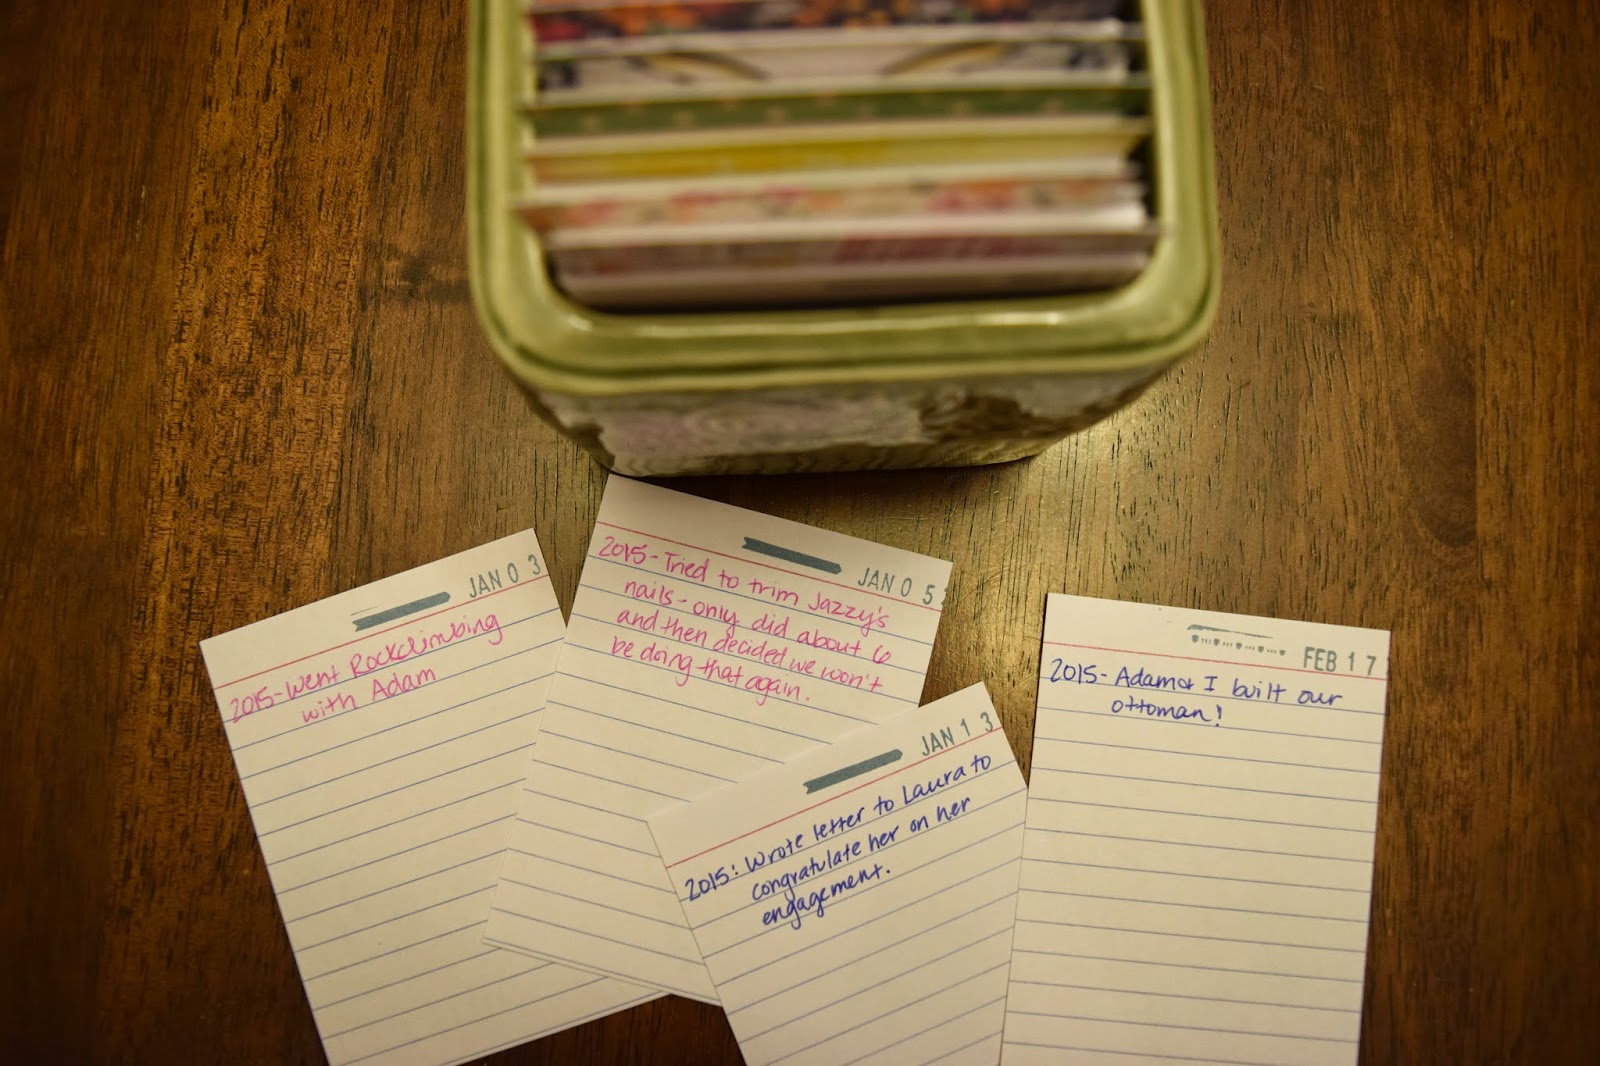 JAN 03
2015-Went Rockclimbing
with Adam
JAN 05
2015-Tried to trim Jazzy's
nails-only did about 6
and then decided we won't
be doing that again.
JAN 13
2015: Wrote letter to Laura to
congratulate her on her
engagement.
FEB 17
2015-Adam & I built our
ottoman!